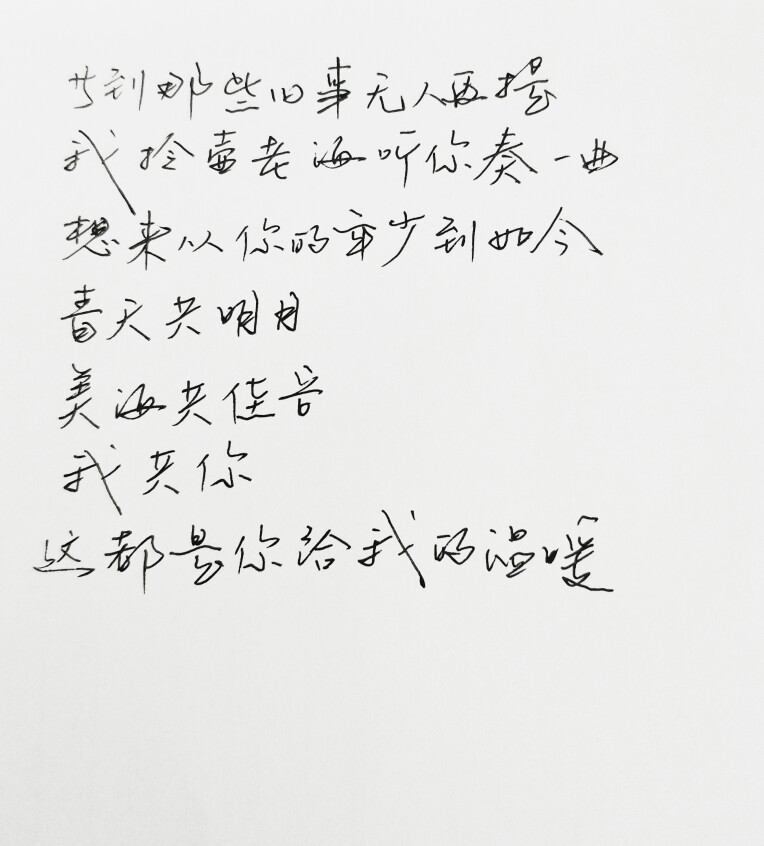 共到那些旧事无人再提
我拎壶老酒听你奏一曲
想来从你的年少到如今
青天共明月
美酒共佳音
我共你
这都是你给我的温暖